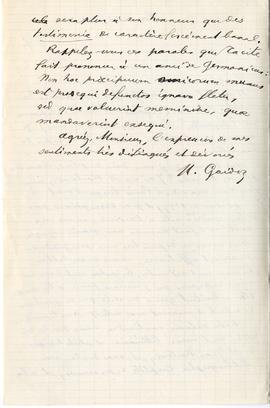 cela sera plus à son honneur que des
testimonia de caractère forcément banal.
Rappelez-vous ces paroles que Tacite
fait prononcer à un ami de Germanicus:
Non hoc præcipuum amicorum munus
est prosequi defunctos ignavo fletu,
sed quæ voluerint meminisse, quæ
mandaverint exsequi.
Agréez, Monsieur, l'expression de mes
sentiments très distingués et dévoués
H. Gaidoz